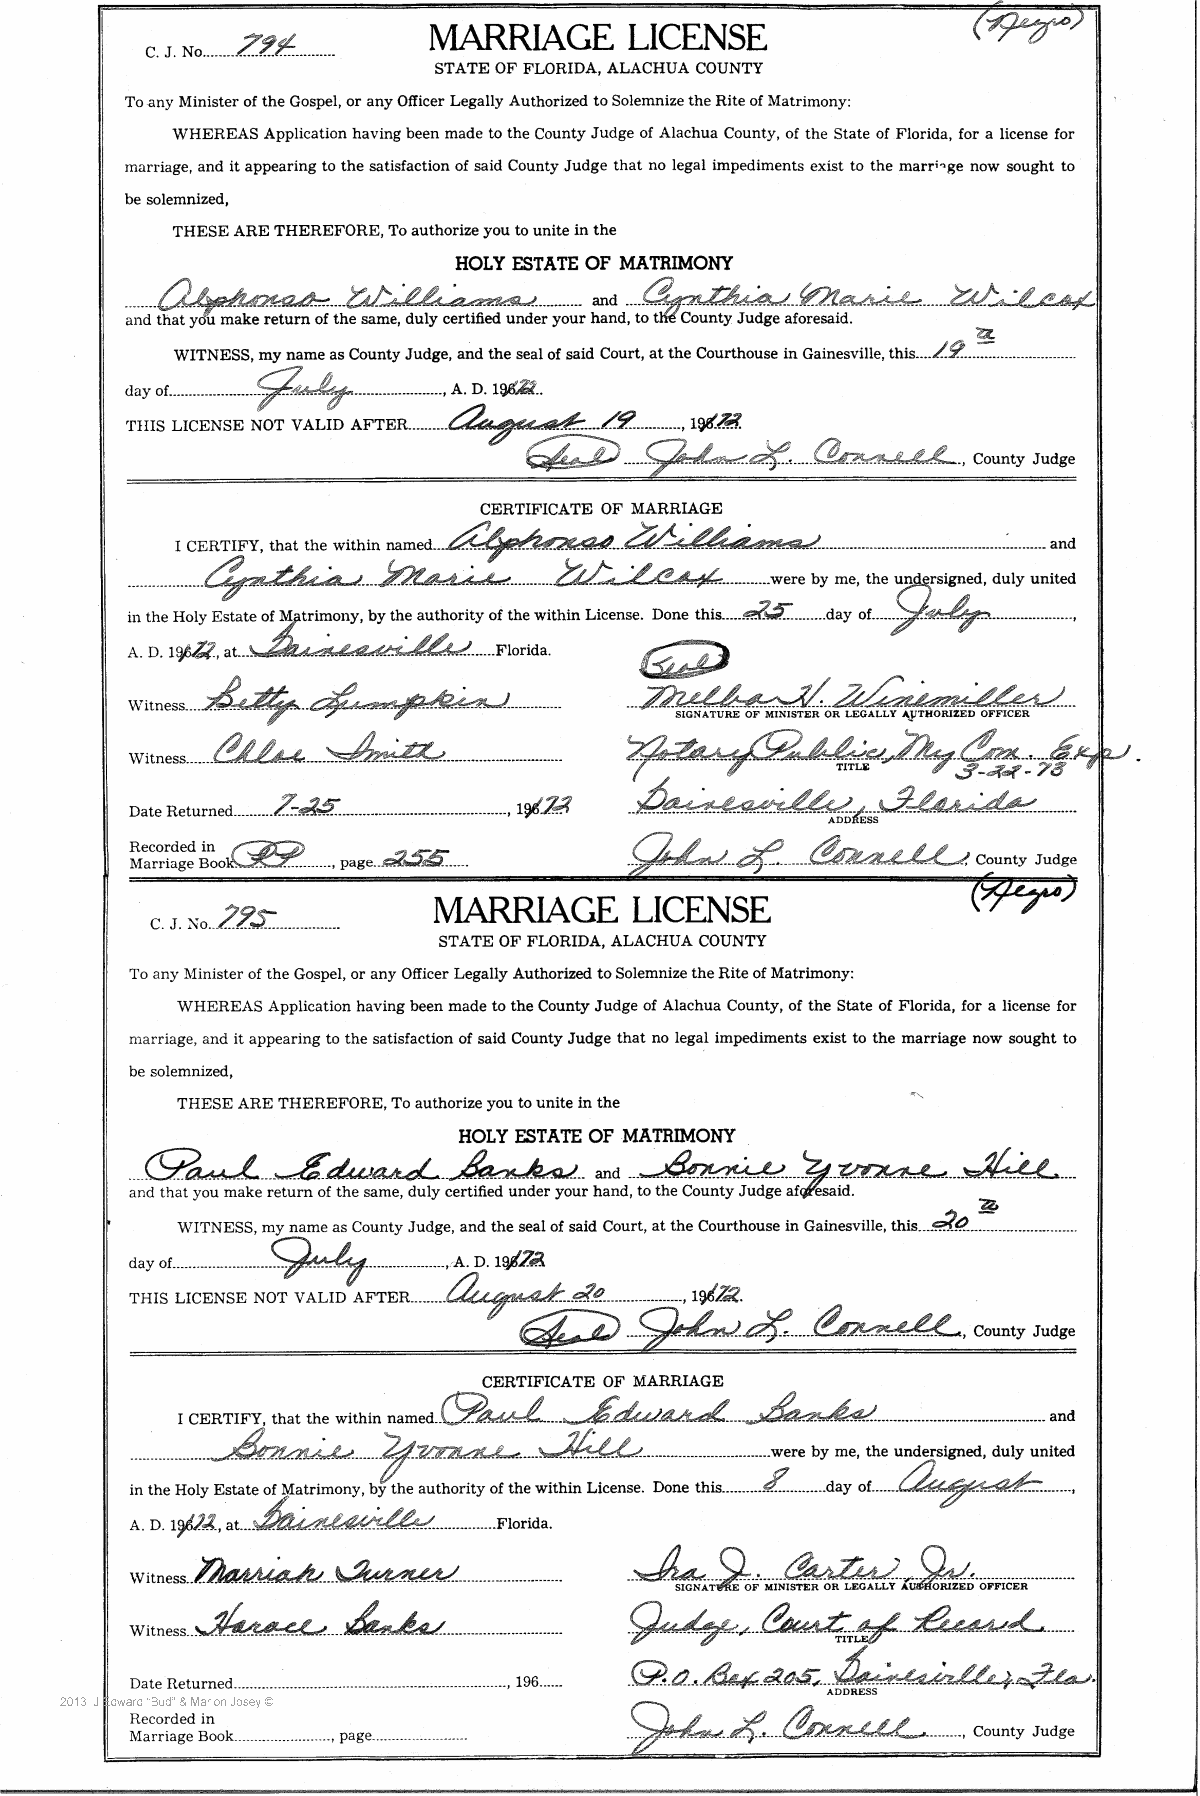 (Negro)
C. J. No. 794
MARRIAGE LICENSE
STATE OF FLORIDA, ALACHUA COUNTY
To any Minister of the Gospel, or any Officer Legally Authorized to Solemnize the Rite of Matrimony:
WHEREAS Application having been made to the County Judge of Alachua County, of the State of Florida, for a license for
marriage, and it appearing to the satisfaction of said County Judge that no legal impediments exist to the marriage now sought to
be solemnized,
THESE ARE THEREFORE, To authorize you to unite in the
HOLY ESTATE OF MATRIMONY
Alphonso Williams and Cynthia Marie Wilcox
and that you make return of the same, duly certified under your hand, to the County Judge aforesaid.
WITNESS, my name as County Judge, and the seal of said Court, at the Courthouse in Gainesville, this 19th
day of July, A. D. 1972
THIS LICENSE NOT VALID AFTER August 19, 1972
(Seal) John L. Connell, County Judge
CERTIFICATE OF MARRIAGE
I CERTIFY, that the within named Alphonso Williams and
Cynthia Marie Wilcox were by me, the undersigned, duly united
in the Holy Estate of Matrimony, by the authority of the within License. Done this 25 day of July,
A. D. 1972, at Gainesville Florida.
(Seal)
Witness Betty Lumpkin Melba H. Winemiller
SIGNATURE OF MINISTER OR LEGALLY AUTHORIZED OFFICER
Witness Chloe Smith Notary Public, My Com. Exp.
TITLE 3-22-73
Date Returned 7-25, 1972 Gainesville, Florida
ADDRESS
Recorded in
Marriage Book PP, page 255 John L. Connell, County Judge
(Negro)
C. J. No. 795
MARRIAGE LICENSE
STATE OF FLORIDA, ALACHUA COUNTY
To any Minister of the Gospel, or any Officer Legally Authorized to Solemnize the Rite of Matrimony:
WHEREAS Application having been made to the County Judge of Alachua County, of the State of Florida, for a license for
marriage, and it appearing to the satisfaction of said County Judge that no legal impediments exist to the marriage now sought to
be solemnized,
THESE ARE THEREFORE, To authorize you to unite in the
HOLY ESTATE OF MATRIMONY
Paul Edward Banks and Bonnie Yvonne Hill
and that you make return of the same, duly certified under your hand, to the County Judge aforesaid.
WITNESS, my name as County Judge, and the seal of said Court, at the Courthouse in Gainesville, this 20th
day of July, A. D. 1972
THIS LICENSE NOT VALID AFTER August 20, 1972.
(Seal) John L. Connell, County Judge
CERTIFICATE OF MARRIAGE
I CERTIFY, that the within named Paul Edward Banks and
Bonnie Yvonne Hill were by me, the undersigned, duly united
in the Holy Estate of Matrimony, by the authority of the within License. Done this 8 day of August,
A. D. 1972, at Gainesville Florida.
Witness Marriah Turner Ira J. Carter, Jr.
SIGNATURE OF MINISTER OR LEGALLY AUTHORIZED OFFICER
Witness Horace Banks Judge, Court of Record
TITLE
Date Returned, 196 P.O. Box 205, Gainesville, Fla.
ADDRESS
2013 J Edward "Bud" & Marion Josey ©
Recorded in
Marriage Book, page John L. Connell, County Judge